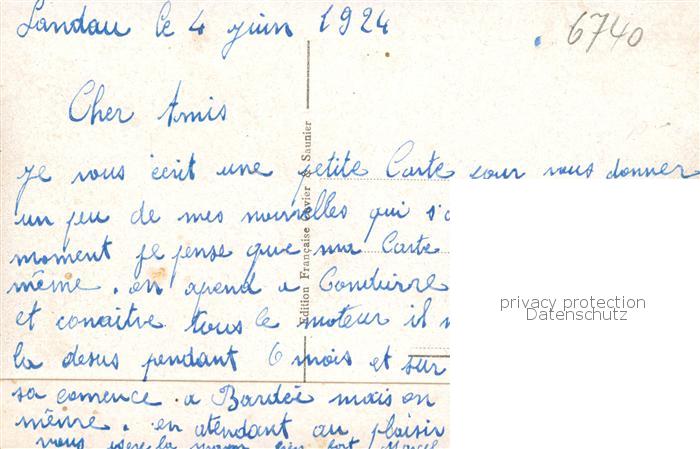 Landau le 4 juin 1924
6740
Cher Amis
je vous écrit une petite Carte pour vous donner
un peu de mes nouvelles qui s'
moment je pense que ma Carte
même. en apend a Conduirre
et conaitre tous le moteur il
la desus pendant 6 mois et sur
sa comence a Bardée mais on
même. en atendant au plaisir
vous fort Marcel
Edition Française Saunier
privacy protection
Datenschutz